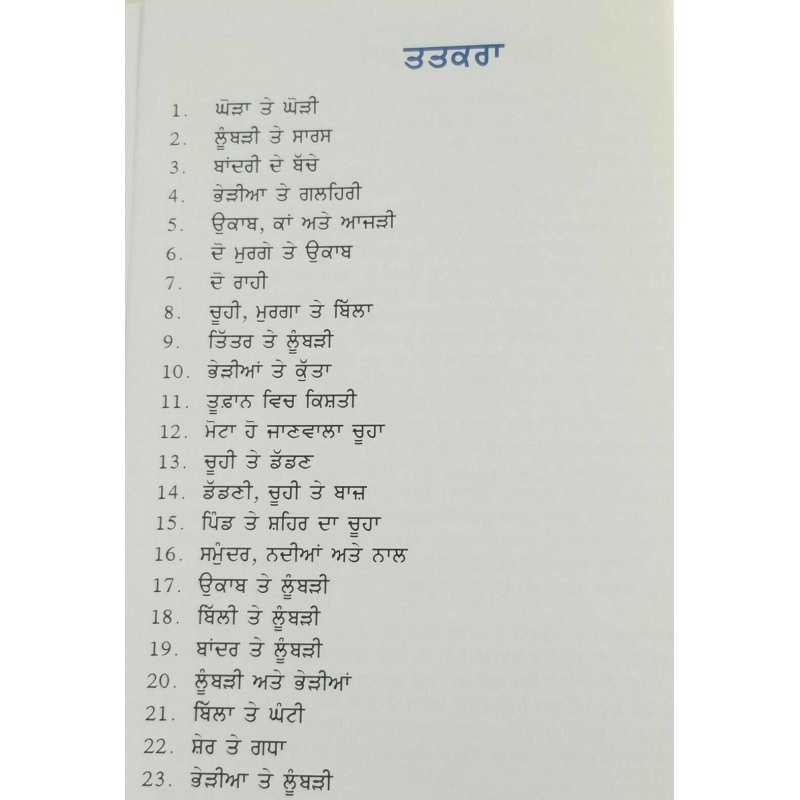 ਤਤਕਰਾ
1. ਘੋੜਾ ਤੇ ਘੋੜੀ
2. ਲੂੰਬੜੀ ਤੇ ਸਾਰਸ
3. ਬਾਂਦਰੀ ਦੇ ਬੱਚੇ
4. ਭੇੜੀਆ ਤੇ ਗਲਹਿਰੀ
5. ਉਕਾਬ, ਕਾਂ ਅਤੇ ਆਜੜੀ
6. ਦੋ ਮੁਰਗੇ ਤੇ ਉਕਾਬ
7. ਦੋ ਰਾਹੀ
8. ਚੂਹੀ, ਮੁਰਗਾ ਤੇ ਬਿੱਲਾ
9. ਤਿੱਤਰ ਤੇ ਲੂੰਬੜੀ
10. ਭੇੜੀਆਂ ਤੇ ਕੁੱਤਾ
11. ਤੂਫ਼ਾਨ ਵਿਚ ਕਿਸ਼ਤੀ
12. ਮੋਟਾ ਹੋ ਜਾਣਵਾਲਾ ਚੂਹਾ
13. ਚੂਹੀ ਤੇ ਡੱਡਣ
14. ਡੱਡਣੀ, ਚੂਹੀ ਤੇ ਬਾਜ਼
15. ਪਿੰਡ ਤੇ ਸ਼ਹਿਰ ਦਾ ਚੂਹਾ
16. ਸਮੁੰਦਰ, ਨਦੀਆਂ ਅਤੇ ਨਾਲ
17. ਉਕਾਬ ਤੇ ਲੂੰਬੜੀ
18. ਬਿੱਲੀ ਤੇ ਲੂੰਬੜੀ
19. ਬਾਂਦਰ ਤੇ ਲੂੰਬੜੀ
20. ਲੂੰਬੜੀ ਅਤੇ ਭੇੜੀਆਂ
21. ਬਿੱਲਾ ਤੇ ਘੰਟੀ
22. ਸ਼ੇਰ ਤੇ ਗਧਾ
23. ਭੇੜੀਆ ਤੇ ਲੂੰਬੜੀ